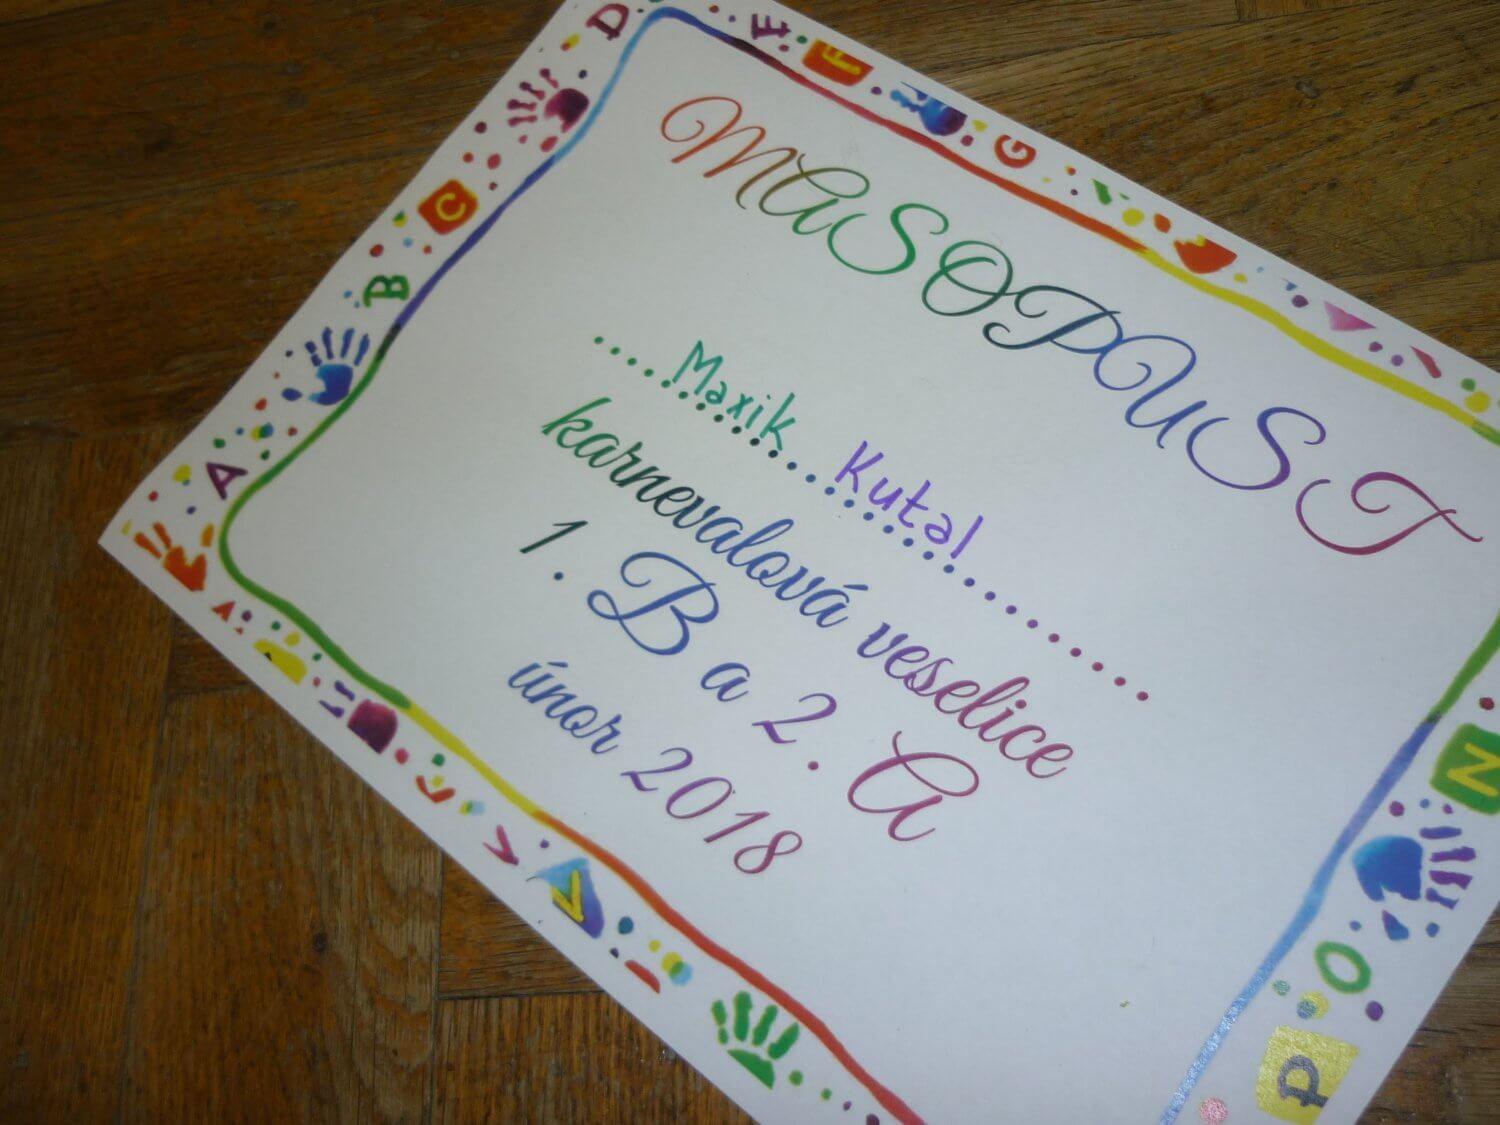 MASOPUST
Maxik Kutal
karnevalová veselice
1. B a 2. A
únor 2018
A B C D E F G
N O P